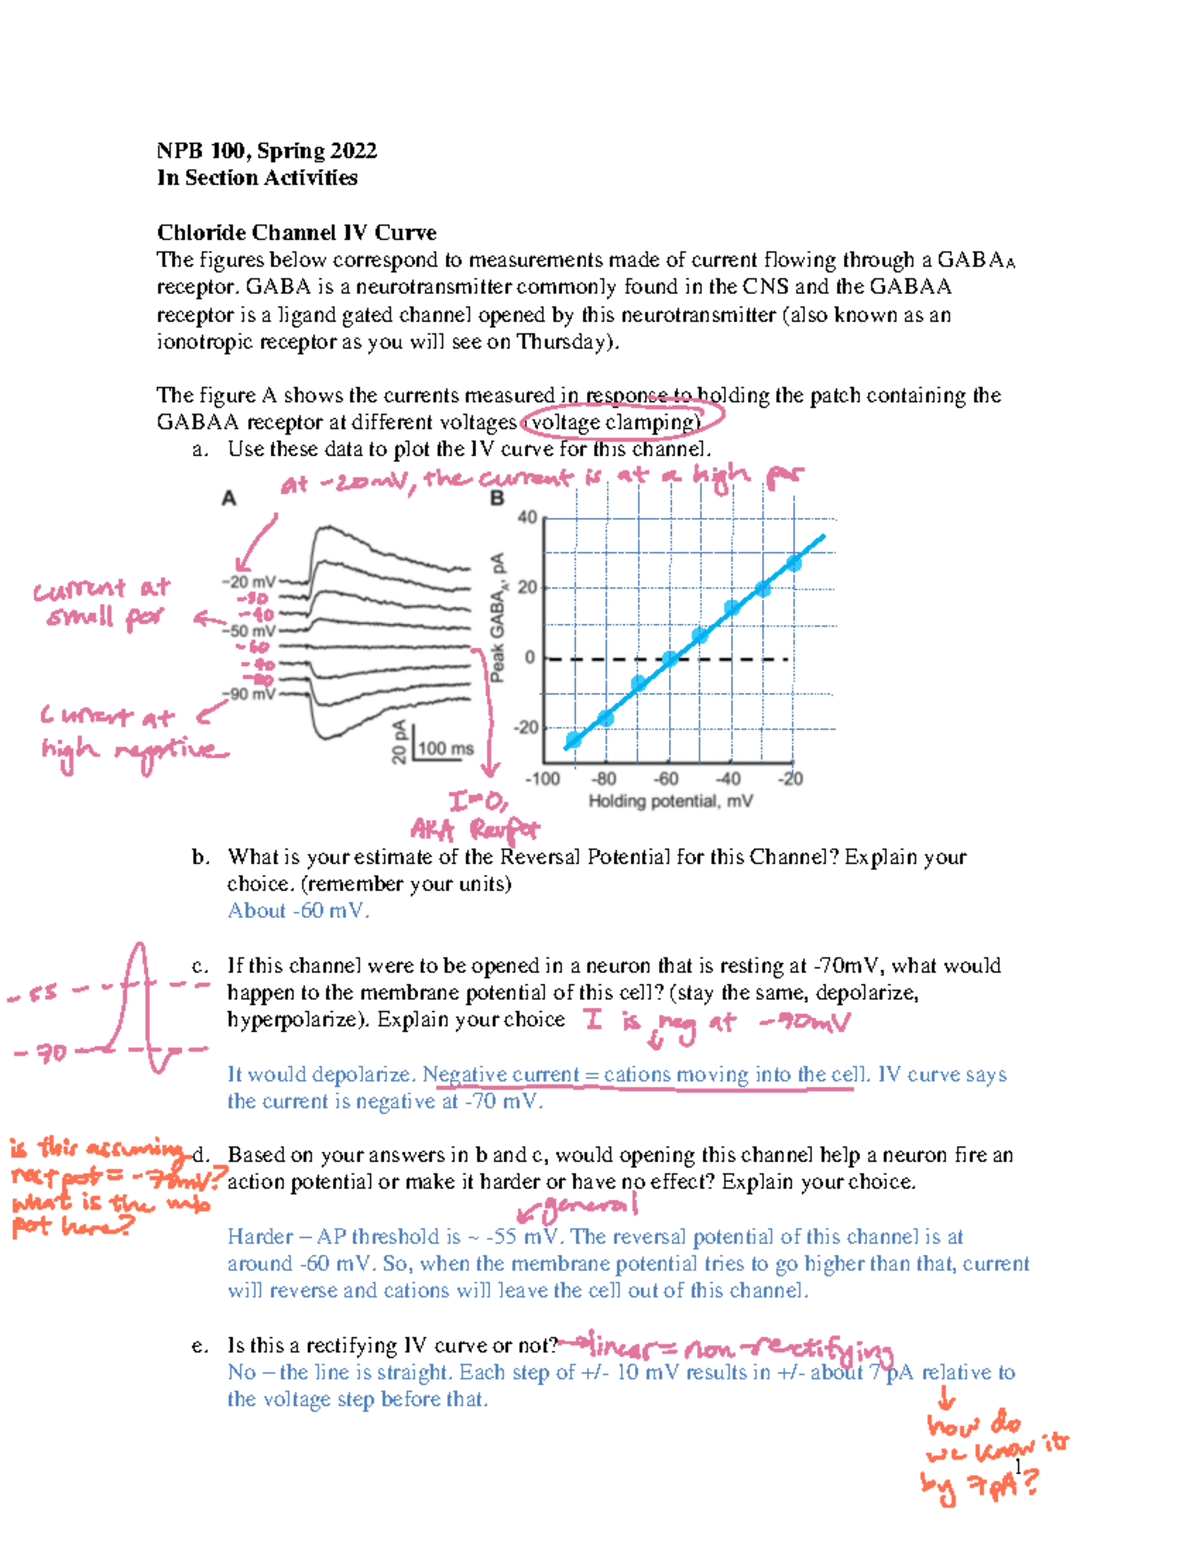 NPB 100, Spring 2022
In Section Activities
Chloride Channel IV Curve
The figures below correspond to measurements made of current flowing through a GABAA
receptor. GABA is a neurotransmitter commonly found in the CNS and the GABAA
receptor is a ligand gated channel opened by this neurotransmitter (also known as an
ionotropic receptor as you will see on Thursday).
The figure A shows the currents measured in response to holding the patch containing the
GABAA receptor at different voltages (voltage clamping)
a. Use these data to plot the IV curve for this channel.
at -20mV, the current is at a high por
A
B
-20 mV
-30
-40
-50 mV
-60
-90 mV
current at
small por
current at
high negative
20 pA
100 ms
I=0,
AKA Revpot
Peak GABAA, pA
40
20
0
-20
-100 -80 -60 -40 -20
Holding potential, mV
b. What is your estimate of the Reversal Potential for this Channel? Explain your
choice. (remember your units)
About -60 mV.
-55
-70
c. If this channel were to be opened in a neuron that is resting at -70mV, what would
happen to the membrane potential of this cell? (stay the same, depolarize,
hyperpolarize). Explain your choice I is neg at -70mV
It would depolarize. Negative current = cations moving into the cell. IV curve says
the current is negative at -70 mV.
is this assuming
rest pot = -70mV?
what is the mb
pot here?
d. Based on your answers in b and c, would opening this channel help a neuron fire an
action potential or make it harder or have no effect? Explain your choice.
general
Harder – AP threshold is ~ -55 mV. The reversal potential of this channel is at
around -60 mV. So, when the membrane potential tries to go higher than that, current
will reverse and cations will leave the cell out of this channel.
e. Is this a rectifying IV curve or not? → linear = non-rectifying
No – the line is straight. Each step of +/- 10 mV results in +/- about 7 pA relative to
the voltage step before that.
how do
we know its
by 7pA?
1